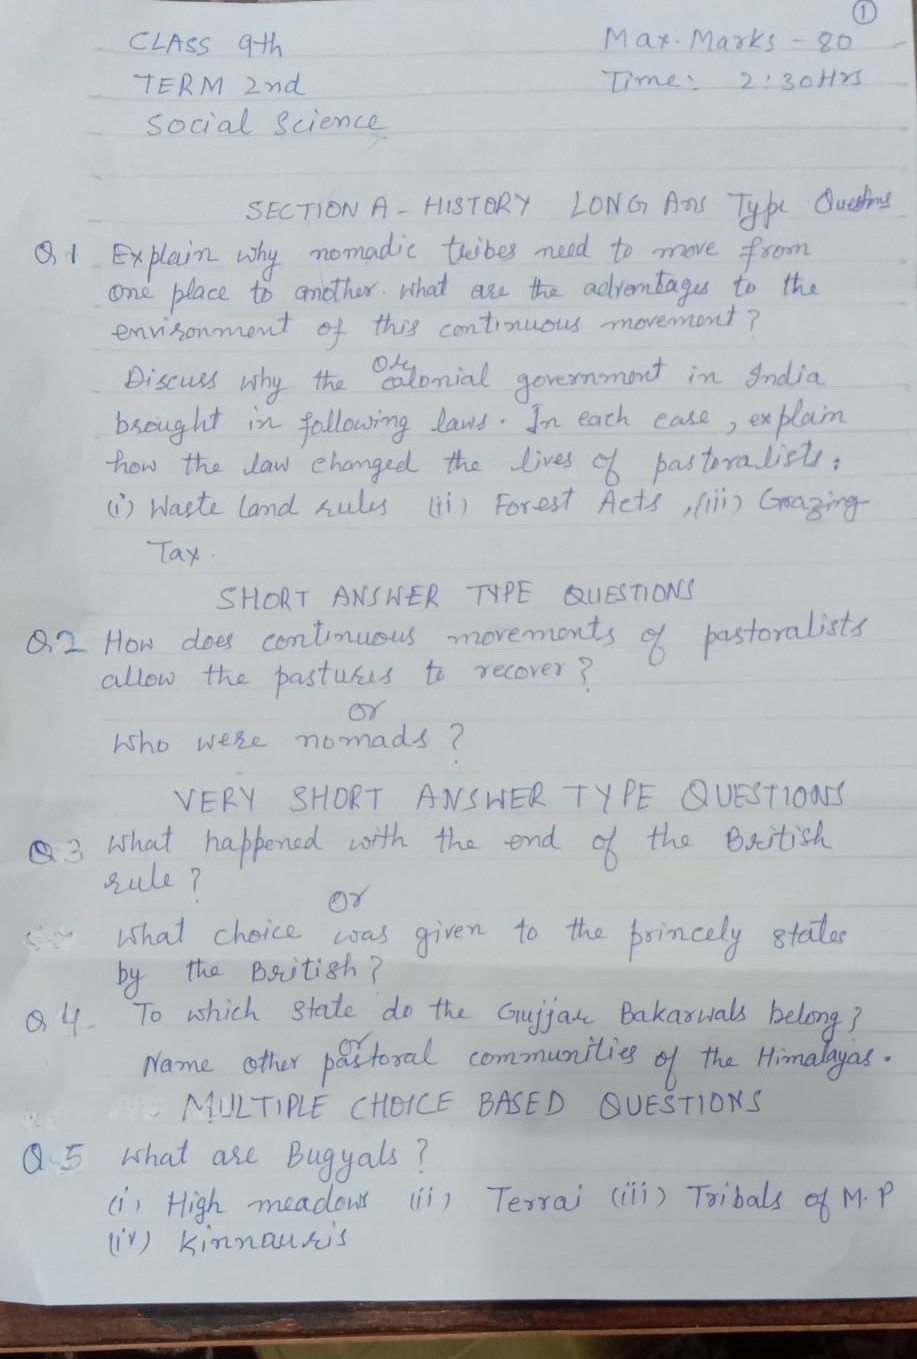 ①
CLASS 9th Max. Marks - 80
TERM 2nd Time: 2:30Hrs
Social Science
SECTION A - HISTORY LONG Ans Type Questions
Q.1 Explain why nomadic tribes need to move from
one place to another. What are the advantages to the
environment of this continuous movement?
OR
Discuss why the colonial government in India
brought in following laws. In each case, explain
how the law changed the lives of pastoralists:
(i) Waste land rules (ii) Forest Acts, (iii) Grazing
Tax.
SHORT ANSWER TYPE QUESTIONS
Q.2 How does continuous movements of pastoralists
allow the pastures to recover?
or
Who were nomads?
VERY SHORT ANSWER TYPE QUESTIONS
Q.3 What happened with the end of the British
rule?
or
What choice was given to the princely states
by the British?
Q 4. To which state do the Gujjar Bakarwals belong?
or
Name other pastoral communities of the Himalayas.
MULTIPLE CHOICE BASED QUESTIONS
Q.5 What are Bugyals?
(i) High meadows (ii) Terrai (iii) Tribals of M.P
(iv) Kinnauris